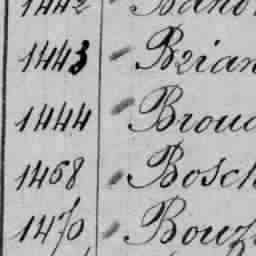 1442
1443 Brian
1444 Brouc
1458 Bosch
1470 Bouz